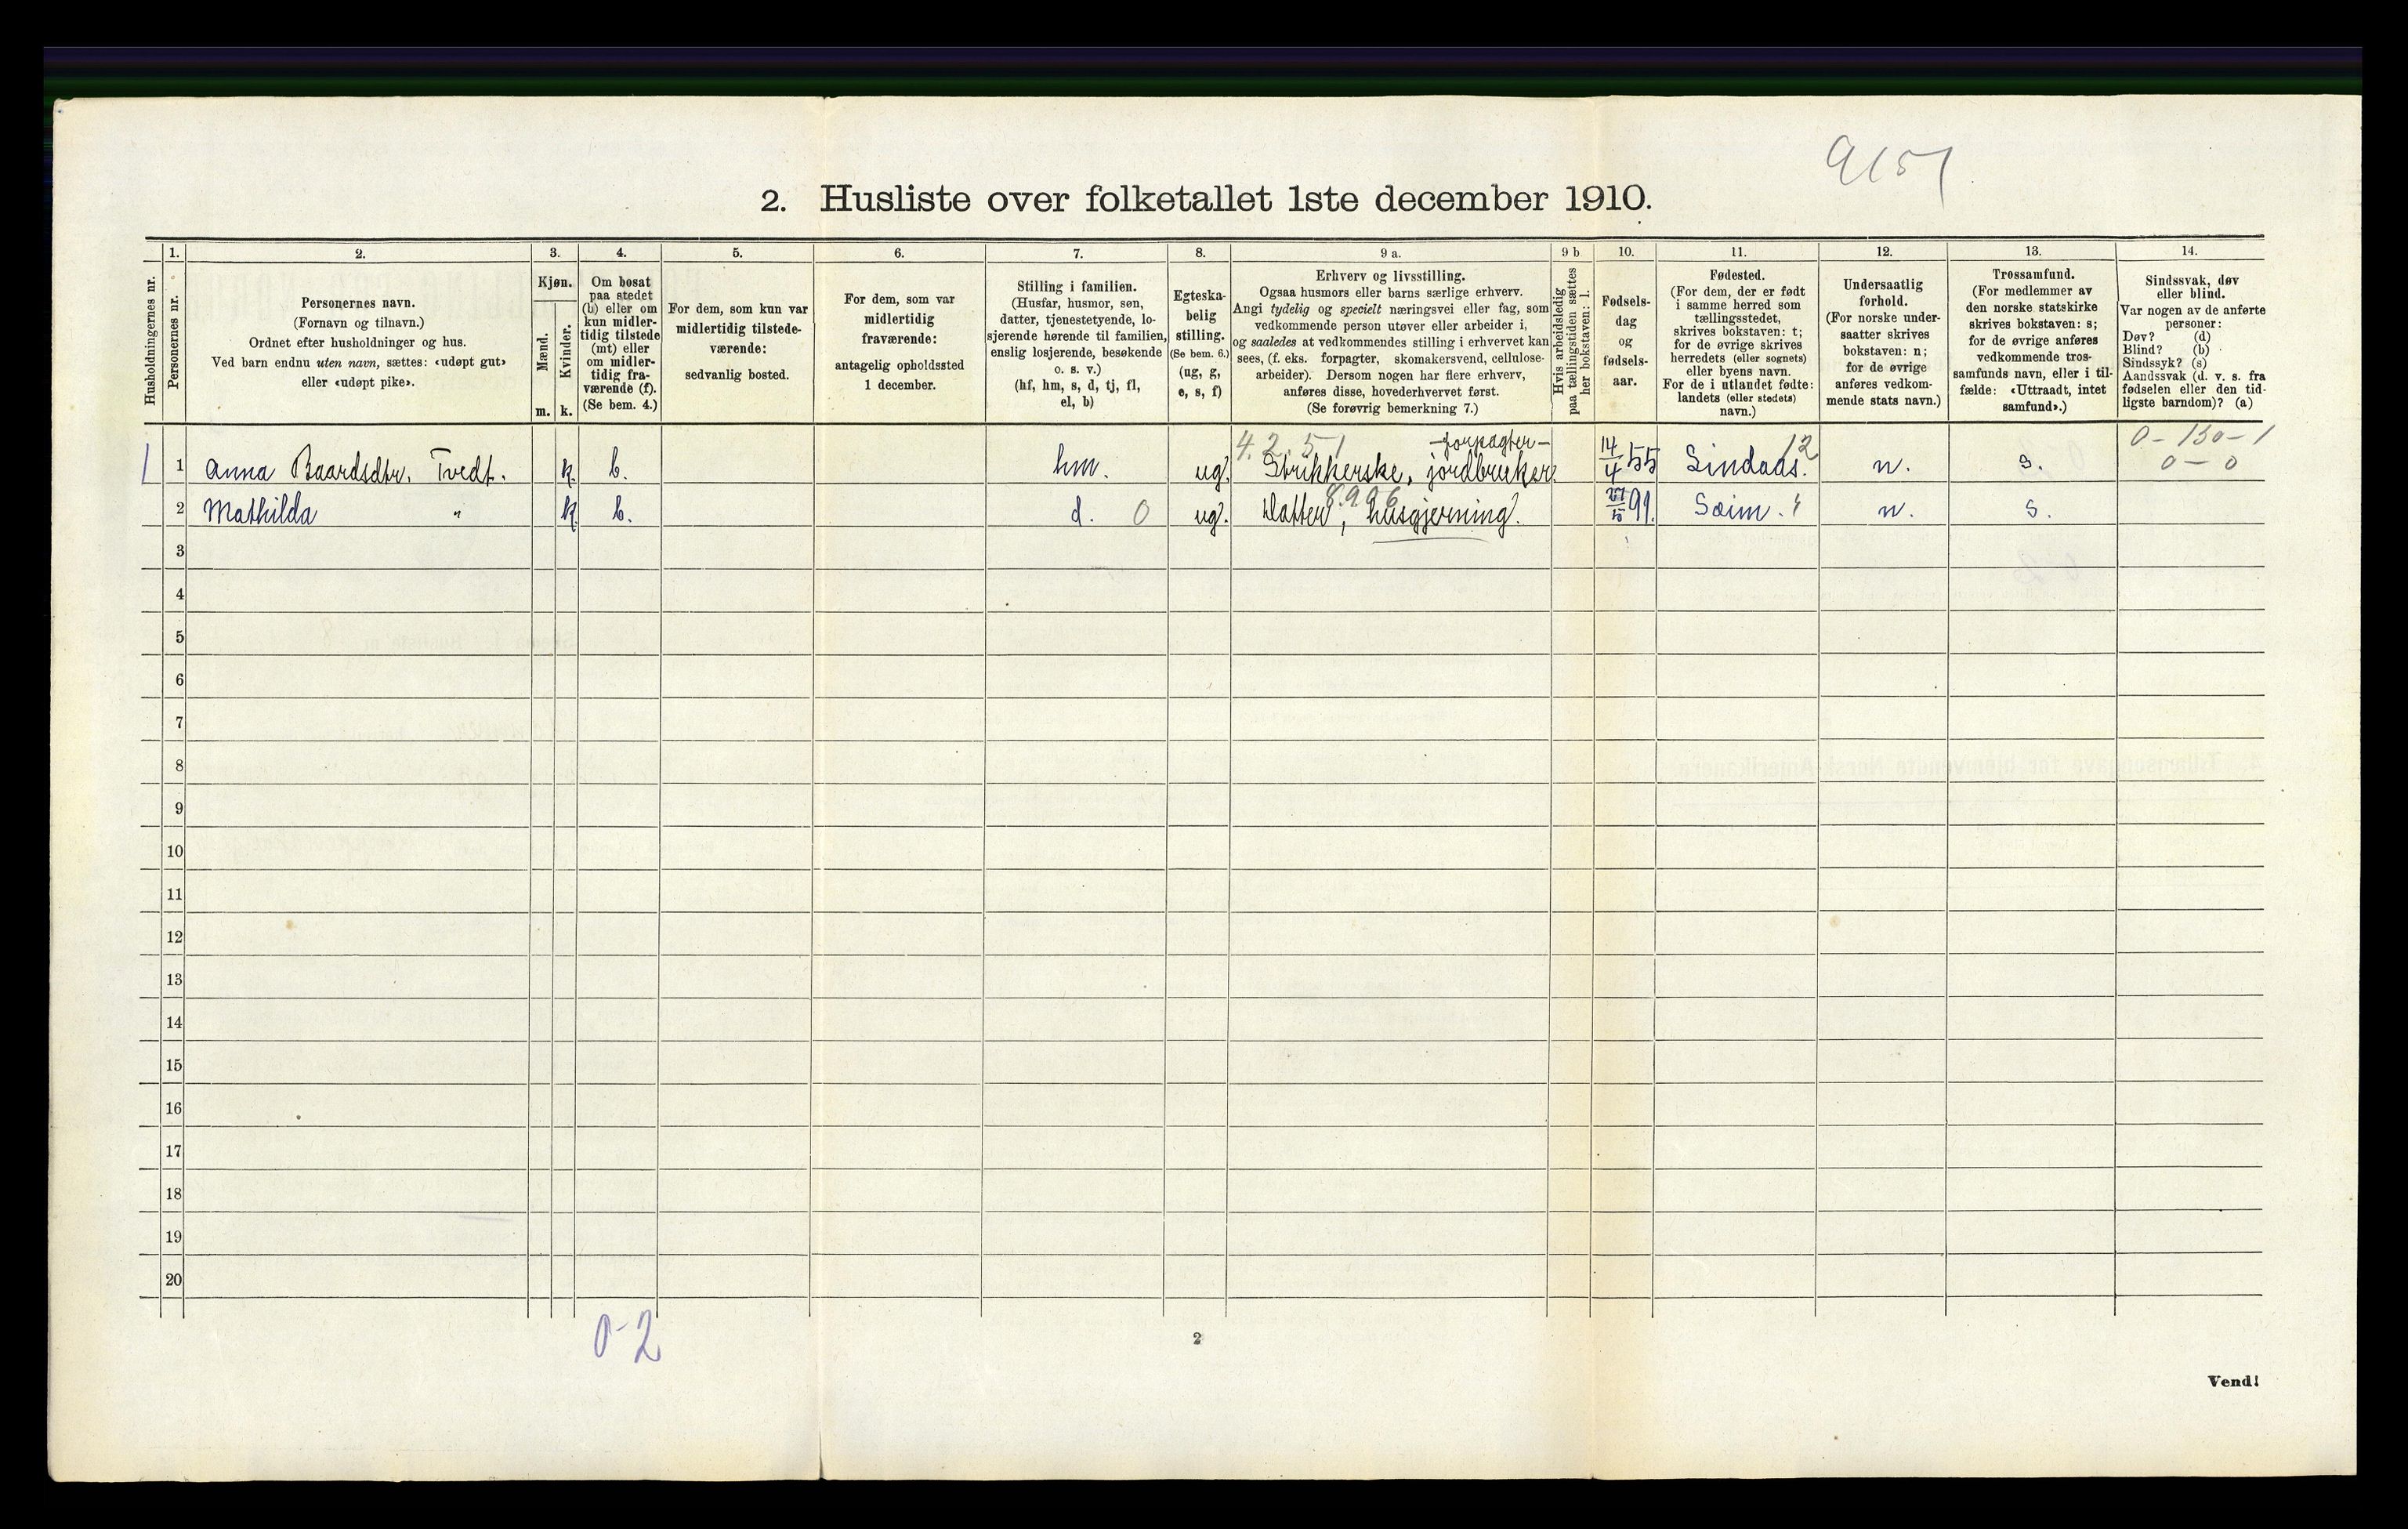 9151
2. Husliste over folketallet 1ste december 1910.
Husholdningernes nr.
1.
Personernes nr.
2.
Personernes navn.
(Fornavn og tilnavn.)
Ordnet efter husholdninger og hus.
Ved barn endnu uten navn, sættes: «udøpt gut»
eller «udøpt pike».
3.
Kjøn.
Mænd.
m.
Kvinder.
k.
4.
Om bosat
paa stedet
(b) eller om
kun midler-
tidig tilstede
(mt) eller
om midler-
tidig fra-
værende (f).
(Se bem. 4.)
5.
For dem, som kun var
midlertidig tilstede-
værende:
sedvanlig bosted.
6.
For dem, som var
midlertidig
fraværende:
antagelig opholdssted
1 december.
7.
Stilling i familien.
(Husfar, husmor, søn,
datter, tjenestetyende, lo-
sjerende hørende til familien,
enslig losjerende, besøkende
o. s. v.)
(hf, hm, s, d, tj, fl,
el, b)
8.
Egteska-
belig
stilling.
(Se bem. 6.)
(ug, g,
e, s, f)
9 a.
Erhverv og livsstilling.
Ogsaa husmors eller barns særlige erhverv.
Angi tydelig og specielt næringsvei eller fag, som
vedkommende person utøver eller arbeider i,
og saaledes at vedkommendes stilling i erhvervet kan
sees, (f. eks. forpagter, skomakersvend, cellulose-
arbeider). Dersom nogen har flere erhverv,
anføres disse, hovederhvervet først.
(Se forøvrig bemerkning 7.)
9 b
Hvis arbeidsledig
paa tællingstiden sættes
her bokstaven: l.
10.
Fødsels-
dag
og
fødsels-
aar.
11.
Fødested.
(For dem, der er født
i samme herred som
tællingsstedet,
skrives bokstaven: t;
for de øvrige skrives
herredets (eller sognets)
eller byens navn.
For de i utlandet fødte:
landets (eller stedets)
navn.)
12.
Undersaatlig
forhold.
(For norske under-
saatter skrives
bokstaven: n;
for de øvrige
anføres vedkom-
mende stats navn.)
13.
Trossamfund.
(For medlemmer av
den norske statskirke
skrives bokstaven: s;
for de øvrige anføres
vedkommende tros-
samfunds navn, eller i til-
fælde: «Uttraadt, intet
samfund».)
14.
Sindssvak, døv
eller blind.
Var nogen av de anførte
personer:
Døv? (d)
Blind? (b)
Sindssyk? (s)
Aandssvak (d. v. s. fra
fødselen eller den tid-
ligste barndom)? (a)
4.2.51 -forpagter- 12 0-130-1
1 1 Anna Baardsdtr. Tvedt. k. b. hm. ug. Strikkerske, jordbruker. 14/4 55 Lindaas. n. s. 0-0
8.9.96
2 Mathilda " k. b. d. 0 ug. Datter, husgjerning. 91. Sæim. n. s.
3
4
5
6
7
8
9
10
11
12
13
14
15
16
17
18
19
20
0-2
2
Vend!